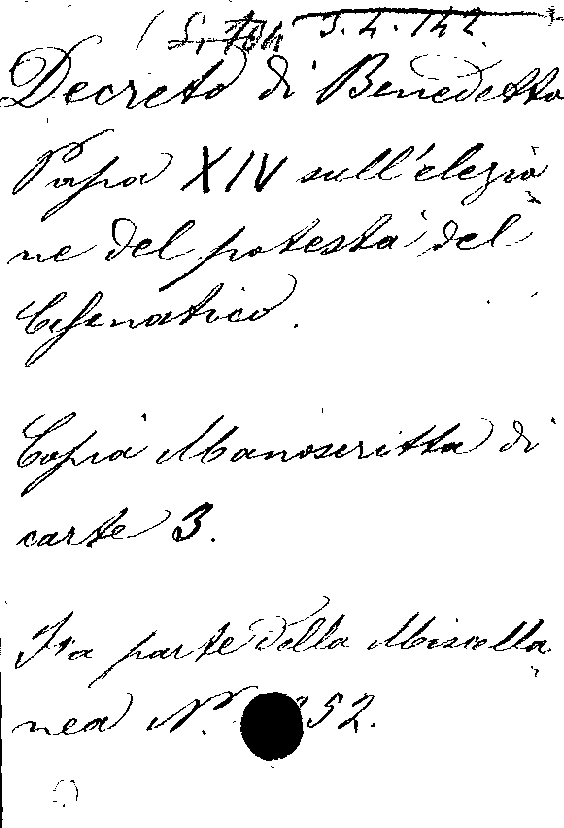 3.4.142
Decreto di Benedetto
Papa XIV sull'elezio
ne del potestà del
Cesenatico.
Copia Manoscritta di
carte 3.
Fa parte della Miscella
nea N. 52.